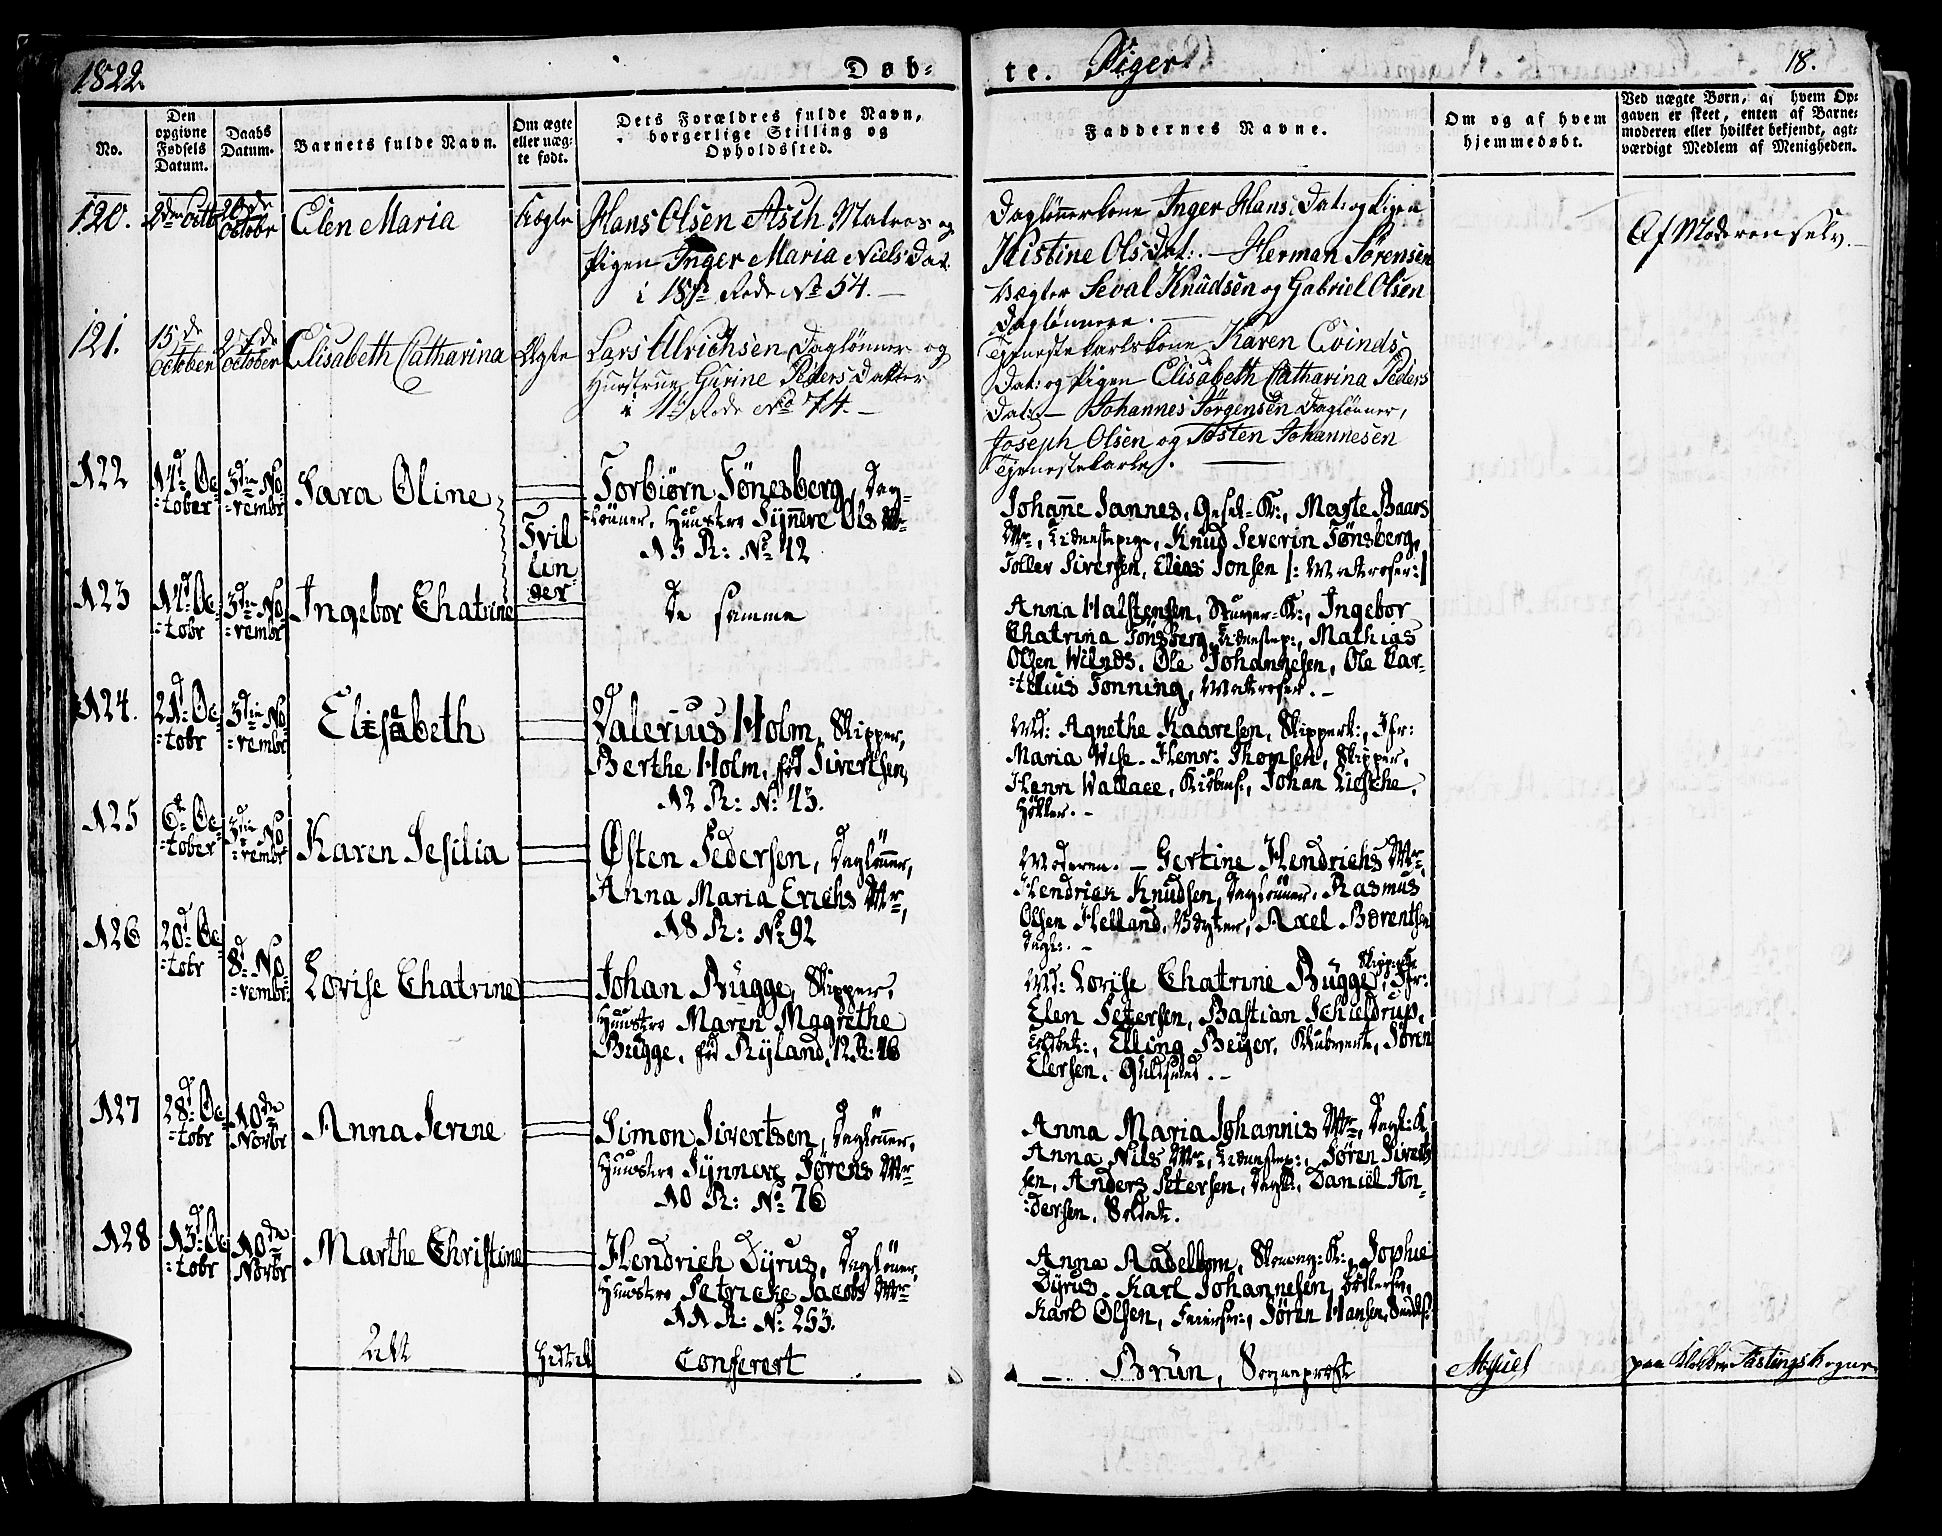 1822.
Døb-
te. Piger.
18.
No.
Den
opgivne
Fødsels
Datum.
Daabs
Datum.
Barnets fulde Navn.
Om ægte
eller uæg-
te født.
Dets Forældres fulde Navn,
borgerlige Stilling og
Opholdssted.
Faddernes Navne.
Om og af hvem
hjemmedøbt.
Ved uægte Børn, af hvem Op-
gaven er skeet, enten af Barne-
moderen eller hvilket bekjendt, agt-
værdigt Medlem af Menigheden.
120.
Elen Maria
Uægte
Hans Olsen Asch Matros og
Pigen Inger Maria Niels Dat.
i 18de Rode No 54. —
Daglønnerkone Inger Hans Dat: og Pigen
Kistine Ols Dat: — Herman Sørensen
Vægter Seval Knudsen og Gabriel Olsen
Daglønnere. —
Af Moderen selv. —
121.
15de
October
27de
October
Elisabeth Catharina
Ægte
Lars Ulrichsen Daglønner og
Hustrue Gurine Peders Datter
i 11te Rode No 74. —
Tjenestekarlskone Karen Evinds
Dat: og Pigen Elisabeth Catharina Peders
Dat: — Johannes Jørgensen Daglønner,
Joseph Olsen og Tosten Johannesen
Tjenestekarle. —
122
14d Oc-
-tober
3die No-
-vembr
Sara Oline
Tvil
lin-
ger
Torbiørn Tønesberg, Dag-
lønner, Huustro Synneve Ols Dr
15 R: No 12
Johanne Jannes, Gesel-K:, Marte Baars
Dr, Tienestepige, Knud Severin Tønsberg,
Toller Siversen, Elias Jonsen /: Matroser:/
123
14d Oc-
-tobr
3die No-
-vembr
Ingebor Chatrine
De samme
Anna Halstensen, Stuver-K:, Ingebor
Chatrina Tønsberg, Tienestep:, Mathias
Olsen Wilnds, Ole Johannesen, Ole Cor-
-telius Tønning, Matroser. —
124.
21d Oc-
-tobr
3die No-
-vembr
Elisabeth
Valerius Holm, Skipper,
Berthe Holm, fød Sivertsen,
12 R: No 43.
Md: Agnethe Kaaresen, Skipperk:, Jfr:
Maria Wise. Henr: Thomsen, Skipper,
Henri Wallace, Kiøbmd:, Johan Liesche,
Høkker. —
125
6t Oc-
-tober
3die No-
-vembr
Karen Sesilia
Østen Pedersen, Dagløner,
Anna Maria Erichs Dr,
18 R: No 92
Moderen. — Gertine Hendrichs Dr,
Hendrick Knudsen, Dagløner, Rasmus
Olsen Helland, Vægter, Axel Børentsen
Dagl:. —
126
20d Oc-
-tobr
8d No-
-vembr:
Lovise Chatrine
Johan Bugge, Skipper,
Huustro Maren Magrethe
Bugge, fød Ryland, 12 R: 46
Md: Lovise Chatrine Bugge, Skipperk: Jfr:
Elen Petersen, Bastian Schieldrup,
Toldbet:, Elling Beyer, Klubvert, Søren
Elersen, Guldsmed. —
127
28d Oc-
-tobr
10de
Novbr
Anna Serine
Simon Sivertsen, Dagløner,
Huustro Synneve Sørens Dr
10 R: No 76
Anna Maria Johannis Dr, Dagl: K,
Anna Nils Dr, Tienestep:, Søren Sivert-
sen, Anders Petersen, Dagl:, Daniel An-
-dersen, Soldat.
128
13d Oc-
-tobr
10de
Novbr
Marthe Christine
Hendrich Dyrus, Dagløner,
Huustro Petricke Jacobs Dr
11 R: No 253.
Anna Aadelbom, Skomag: K:, Sophie
Dyrus. Karl Johannesen, Bødkersv,
Karl Olsen, Feiersv:, Søren Hansen, Smeds:
Conferert
— Brun, Sogneprest
paa Klokker Fastings Vegne.